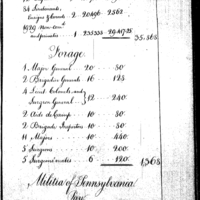 84 Lieutenants,
Ensigns & Cornets 2 - 20496 - 2562
1929 Non-Com'd
and privates 1 -
35,868
Forage.
1 Major General 20 - 50
2 Brigadier Generals 16 - 128
4 Lieut. Colonels and
Surgeon General 12 - 240
2 Aids de Camp 10 - 80
2 Brigade Inspectors 10 - 80
11 Majors 10 - 440
5 Surgeons 10 - 200
5 Surgeons mates - 6 - 120
1,368
Militia of Pennsylvania